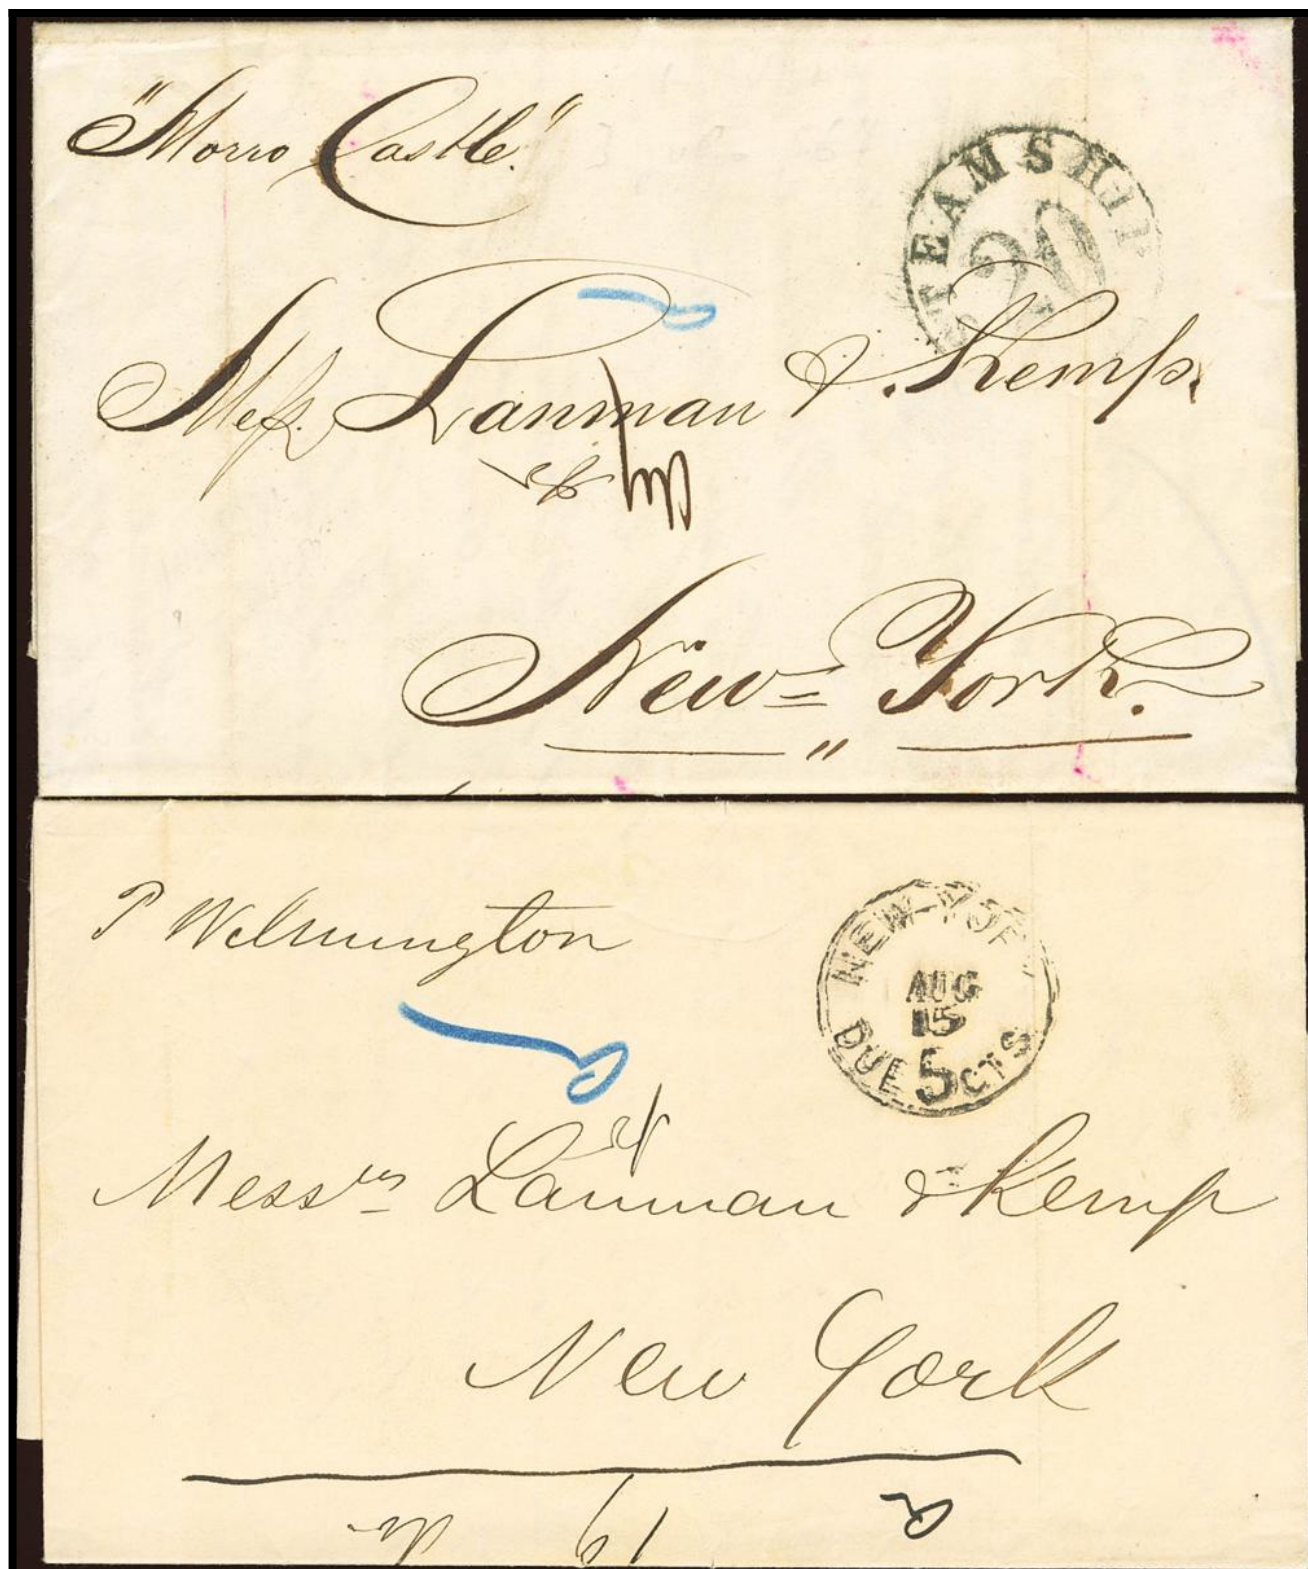 "Morro Castle."
STEAMSHIP
20
Mess. Lanman & Kemp.
New=York.
"
P Wilmington
NEW YORK
AUG
15
DUE 5 CTS
Messrs Lanman & Kemp
New York